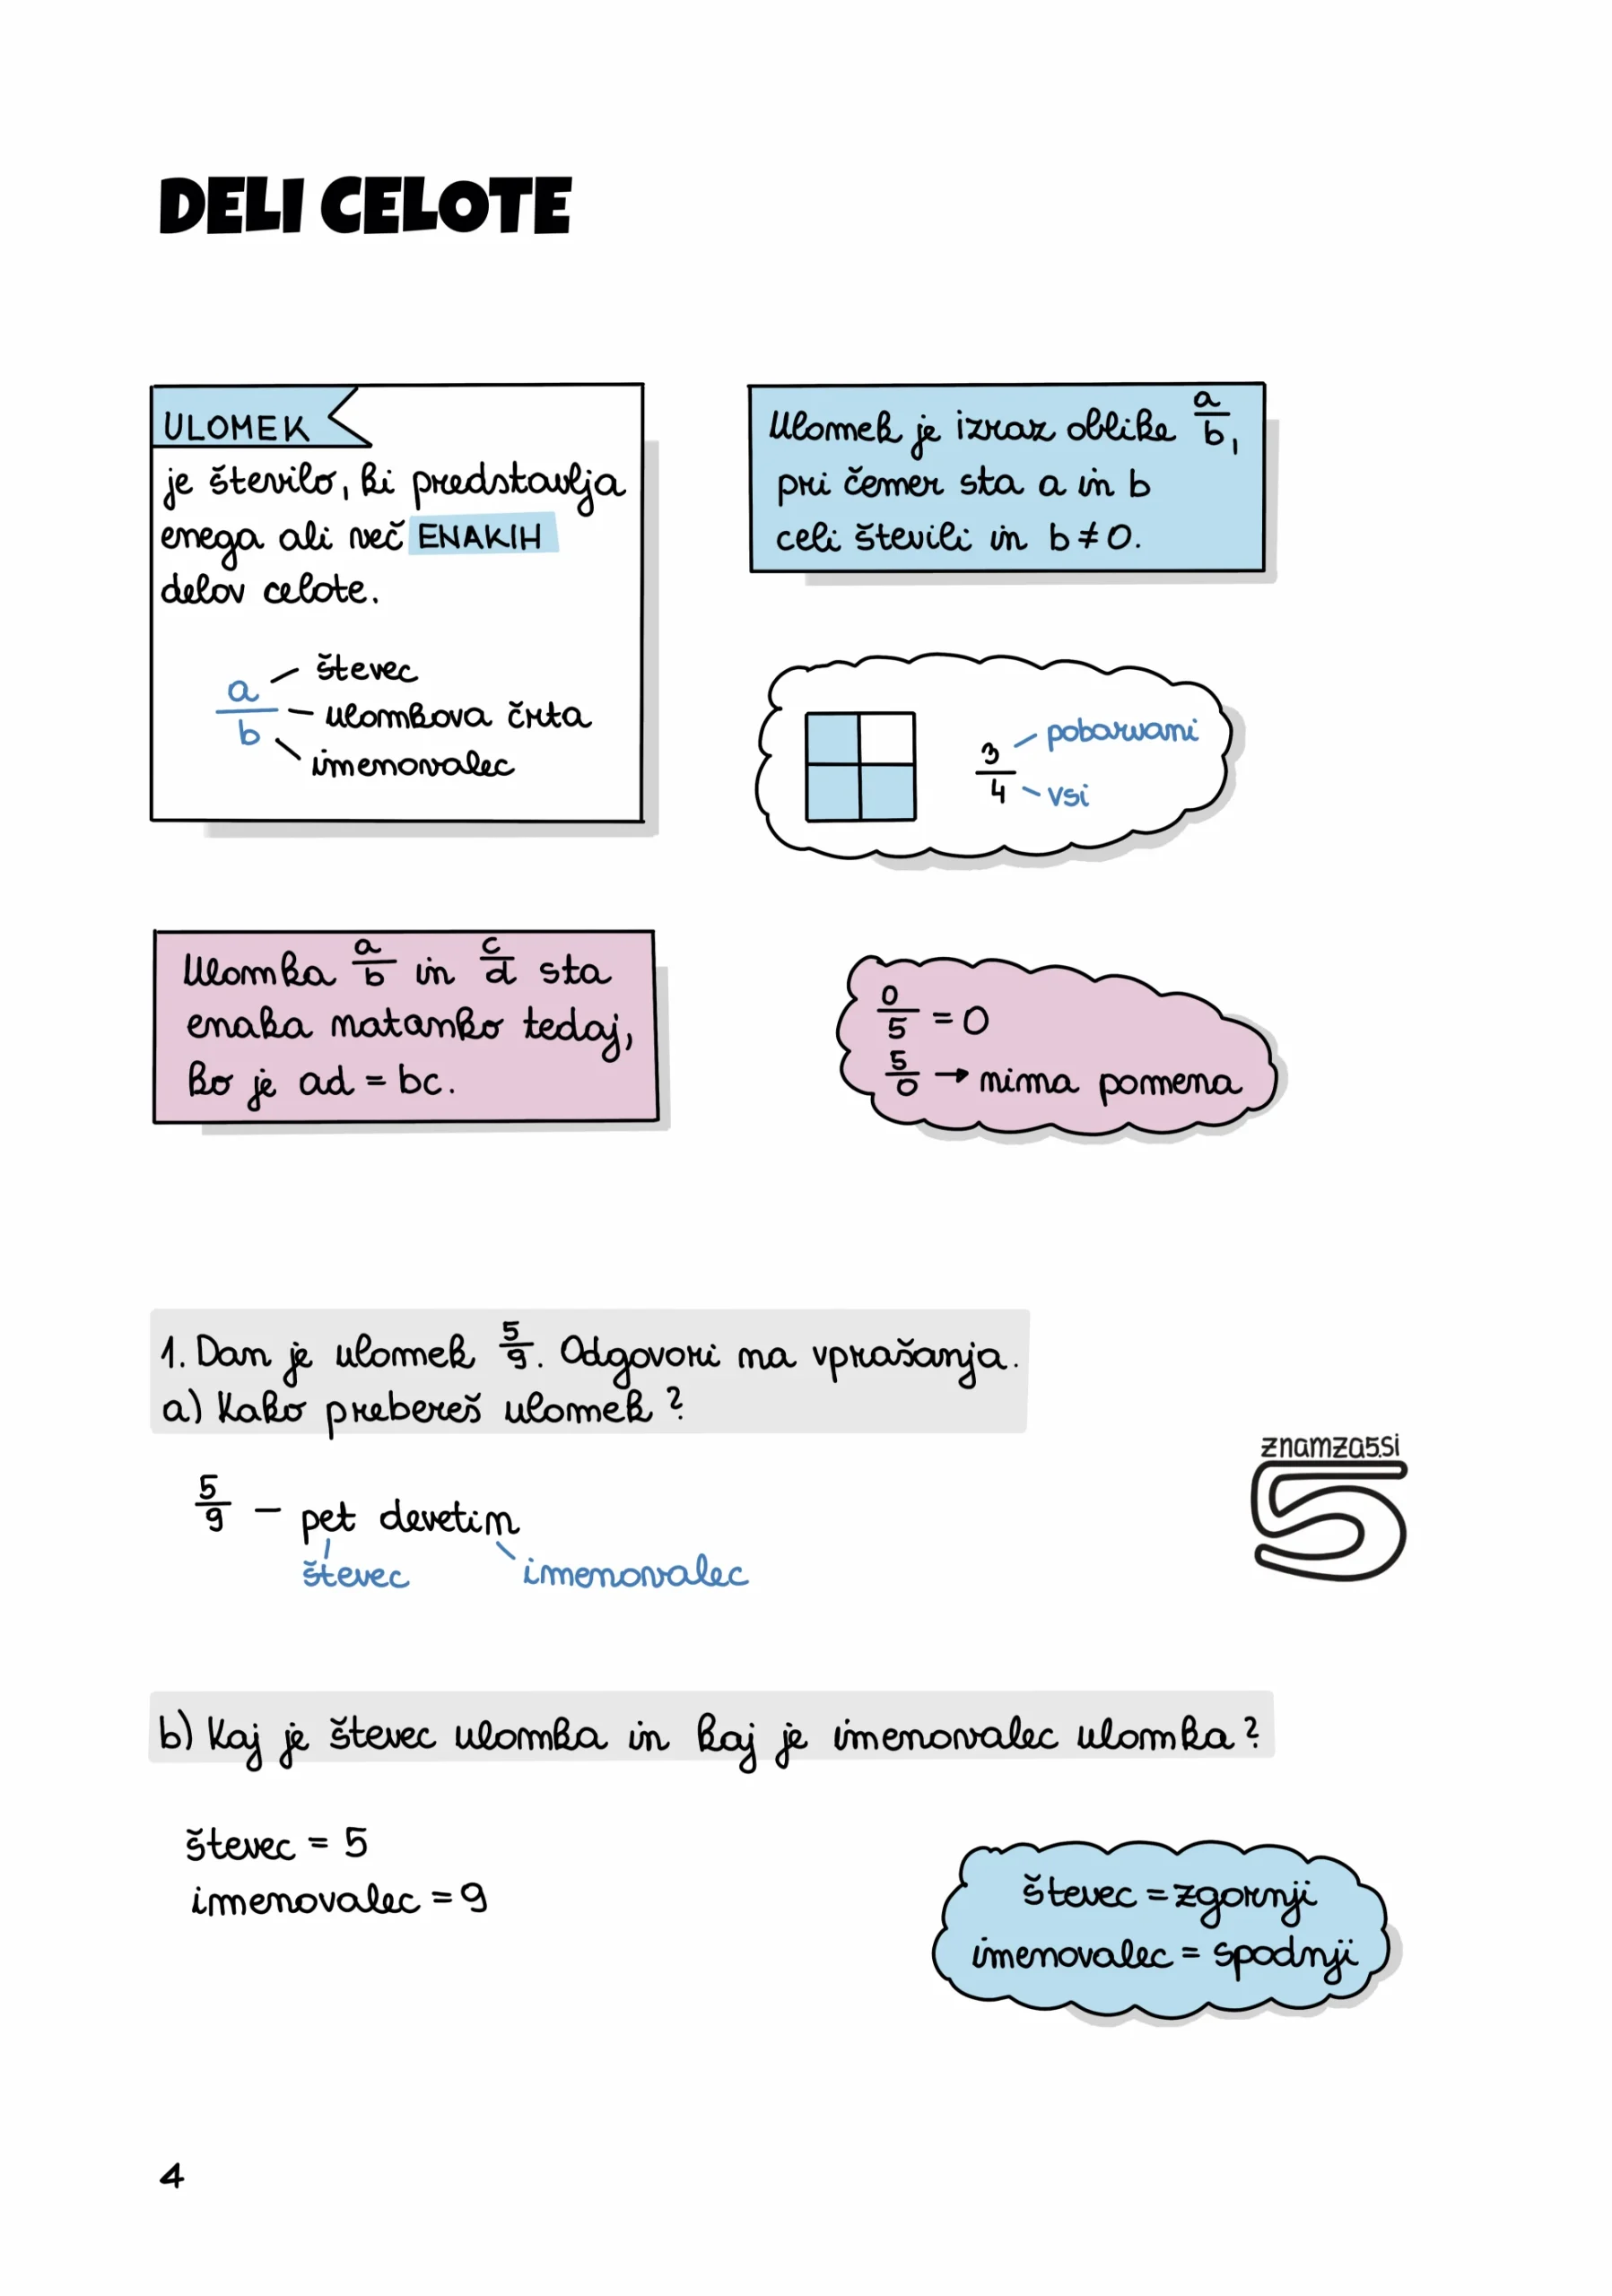 DELI CELOTE
ULOMEK
je število, ki predstavlja
enega ali več ENAKIH
delov celote.
a/b
števec
ulomkova črta
imenovalec
Ulomek je izraz oblike a/b,
pri čemer sta a in b
celi števili in b ≠ 0.
3/4
pobarvani
vsi
Ulomka a/b in c/d sta
enaka natanko tedaj,
ko je ad = bc.
0/5 = 0
5/0 → nima pomena
1. Dan je ulomek 5/9. Odgovori na vprašanja.
a) Kako prebereš ulomek?
5/9 – pet devetin
števec imenovalec
znamza5.si
5
b) Kaj je števec ulomka in kaj je imenovalec ulomka?
števec = 5
imenovalec = 9
števec = zgornji
imenovalec = spodnji
4